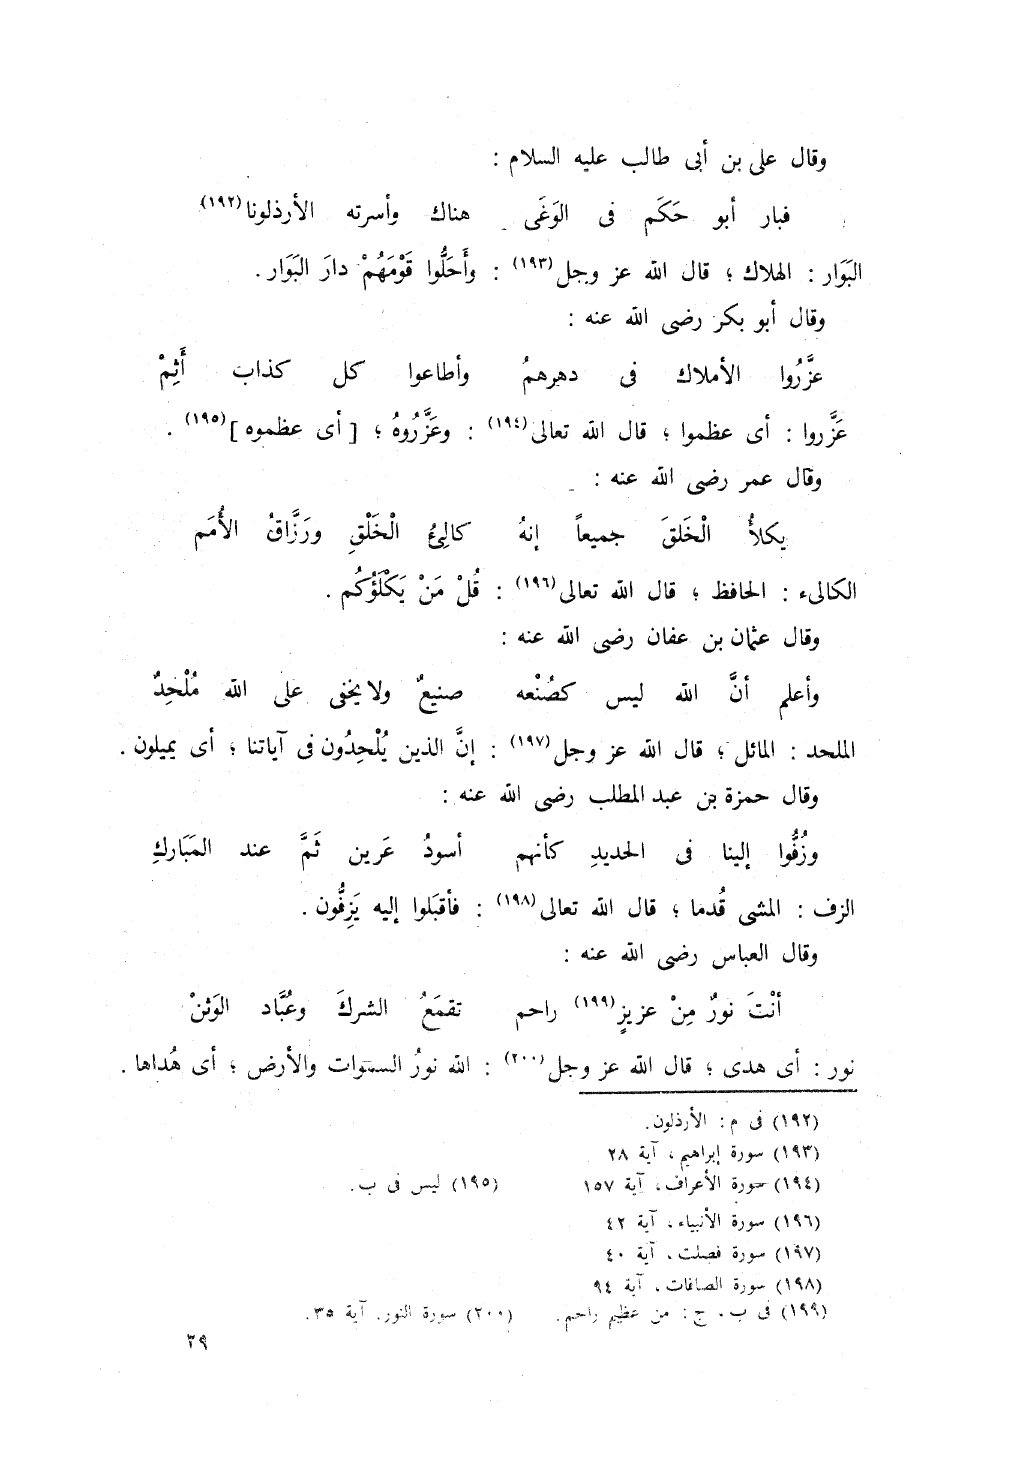 وقال على بن أبى طالب عليه السلام :
فبار أبو حَكَم فى الوَغَى هناك وأسرته الأرذلونا(١٩٢)
البَوَار : الهلاك ؛ قال الله عز وجل(١٩٣) : وأَحَلُّوا قَوْمَهُمْ دارَ البَوَار .
وقال أبو بكر رضى الله عنه :
عزَّرُوا الأملاك فى دهرهمُ وأطاعوا كل كذاب أَثِمْ
عَزَّروا : أى عظموا ؛ قال الله تعالى(١٩٤) : وعَزَّرُوهُ ؛ [ أى عظموه ](١٩٥) .
وقال عمر رضى الله عنه :
يكلأُ الْخَلقَ جميعاً إنهُ كالِئُ الْخَلْقِ ورَزَّاقُ الأُمَم
الكالىء : الحافظ ؛ قال الله تعالى(١٩٦) : قُلْ مَنْ يَكْلَؤُكُم .
وقال عثمان بن عفان رضى الله عنه :
وأعلم أنَّ الله ليس كصُنْعه صنيعٌ ولا يخفى على الله مُلْحِدٌ
الملحد : المائل ؛ قال الله عز وجل(١٩٧) : إنَّ الذين يُلْحِدُون فى آياتنا ؛ أى يميلون .
وقال حمزة بن عبد المطلب رضى الله عنه :
وزُفُّوا إلينا فى الحديدِ كأنهم أسودُ عَرين ثَمَّ عند المَبَاركِ
الزف : المشى قُدما ؛ قال الله تعالى(١٩٨) : فأقبَلوا إليه يَزِفُّون .
وقال العباس رضى الله عنه :
أنْتَ نورٌ مِنْ عزيزٍ(١٩٩) راحم تقمَعُ الشركَ وعُبَّاد الوَثنْ
نور : أى هدى ؛ قال الله عز وجل(٢٠٠) : الله نورُ السموات والأرض ؛ أى هُداها .
(١٩٢) فى م : الأرذلون.
(١٩٣) سورة إبراهيم، آية ٢٨
(١٩٤) سورة الأعراف، آية ١٥٧ (١٩٥) ليس فى ب.
(١٩٦) سورة الأنبياء، آية ٤٢
(١٩٧) سورة فصلت، آية ٤٠
(١٩٨) سورة الصافات، آية ٩٤
(١٩٩) فى ب، ج : من عظيم راحم. (٢٠٠) سورة النور، آية ٣٥.
٢٩